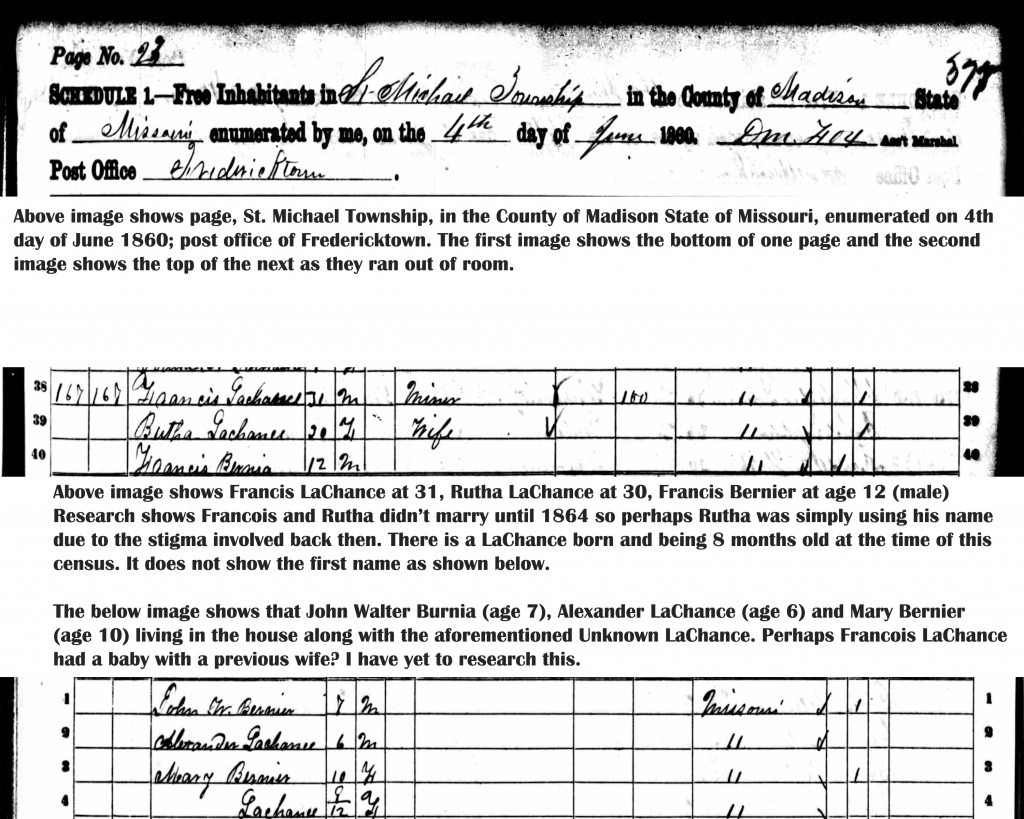 Page No. 23
578
SCHEDULE 1.—Free Inhabitants in St. Michael Township in the County of Madison State
of Missouri enumerated by me, on the 4th day of June 1860. Ass't Marshal
Post Office Fredericktown.
Above image shows page, St. Michael Township, in the County of Madison State of Missouri, enumerated on 4th
day of June 1860; post office of Fredericktown. The first image shows the bottom of one page and the second
image shows the top of the next as they ran out of room.
38 167 167 Francis Lachance 31 M Miner 100 " 1 38
39 Lachance 30 F Wife " 1 39
40 Francis Bernia 12 M " 1 40
Above image shows Francis LaChance at 31, Rutha LaChance at 30, Francis Bernier at age 12 (male)
Research shows Francois and Rutha didn't marry until 1864 so perhaps Rutha was simply using his name
due to the stigma involved back then. There is a LaChance born and being 8 months old at the time of this
census. It does not show the first name as shown below.
The below image shows that John Walter Burnia (age 7), Alexander LaChance (age 6) and Mary Bernier
(age 10) living in the house along with the aforementioned Unknown LaChance. Perhaps Francois LaChance
had a baby with a previous wife? I have yet to research this.
1 John W. Bernier 7 M Missouri 1 1
2 Alexander Lachance 6 M " 2
3 Mary Bernier 10 F " 1 3
4 Lachance 8/12 F " 4